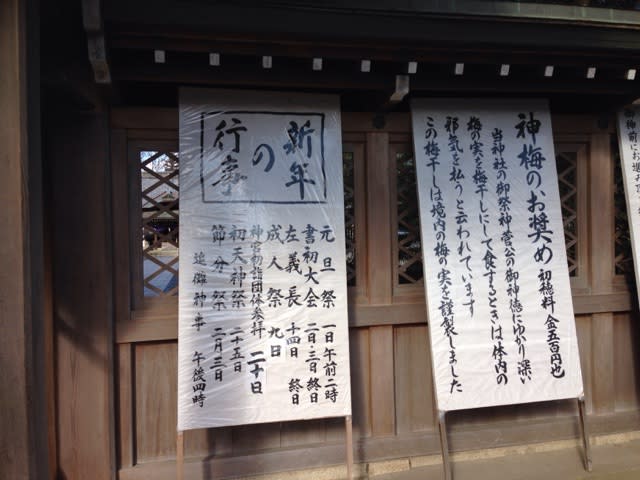 御神前にお進み
神梅のお奨め 初穂料 金五百円也
当神社の御祭神菅公の御神徳にゆかり深い
梅の実を梅干しにして食するときは体内の
邪気を払うと云われています
この梅干しは境内の梅の実を謹製しました
新年
の
行事
元旦祭 一日午前二時
書初大会 二日・三日終日
左義長 十四日 終日
成人祭 九日
神宮初詣団体参拝 二十日
初天神祭 二十五日
節分祭 二月三日
追儺神事 午後四時